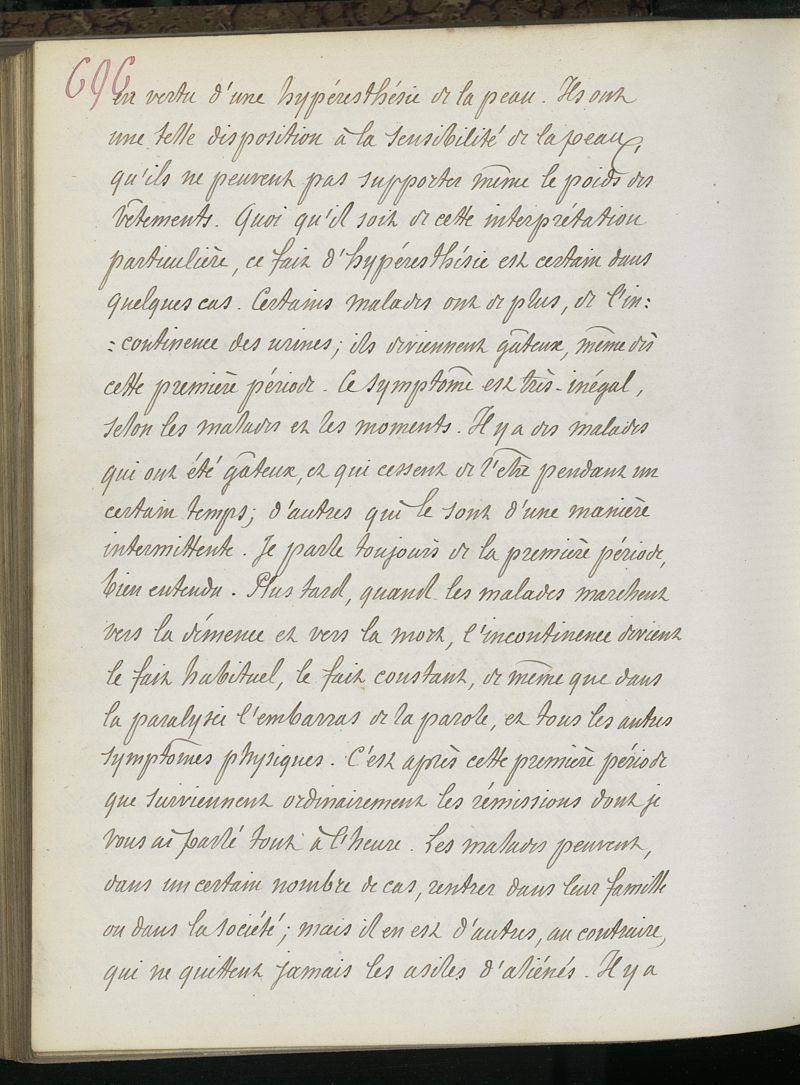 696
en vertu d'une hypéresthésie de la peau. Ils ont
une telle disposition à la sensibilité de la peau,
qu'ils ne peuvent pas supporter même le poids des
vêtements. Quoi qu'il soit de cette interprétation
particulière, ce fait d'hypéresthésie est certain dans
quelques cas. Certains malades ont de plus, de l'in:
:continence des urines; ils deviennent gâteux, même dès
cette première période. Ce symptôme est très-inégal,
selon les malades et les moments. Il y a des malades
qui ont été gâteux, et qui cessent de l'être pendant un
certain temps; d'autres qui le sont d'une manière
intermittente. Je parle toujours de la première période,
bien entendu. Plus tard, quand les malades marchent
vers la démence et vers la mort, l'incontinence devient
le fait habituel, le fait constant, de même que dans
la paralysie l'embarras de la parole, et tous les autres
symptômes physiques. C'est après cette première période
que surviennent ordinairement les rémissions dont je
vous ai parlé tout à l'heure. Les malades peuvent,
dans un certain nombre de cas, rentrer dans leur famille
ou dans la société; mais il en est d'autres, au contraire,
qui ne quittent jamais les asiles d'aliénés. Il y a